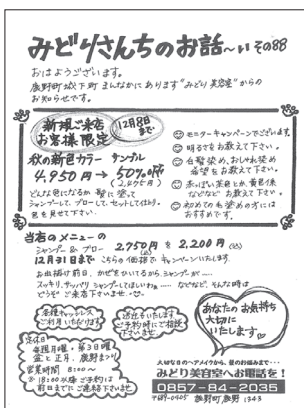 みどりさんちのお話〜い その88
おはようございます。
鹿野町城下町まんなかにあります"みどり美容室"からの
お知らせです。
新規ご来店
お客様限定
12月8日
まで
秋の新色カラー サンプル
4,950円→50%OFF
(2,475円)
どんな色になるか 髪に塗って
シャンプーして、ブローして、セットしてはけり。
色を見せて下さい。
モニターキャンペーンでございます。
明るさをお教え下さい。
白髪染め、おしゃれ染め
希望をお教え下さい。
赤っぽい茶色とか、黄色係
などなど お教え下さい。
初めての毛染めの方には
おすすめです。
当店のメニューの
シャンプー & ブロー 2,750円を 2,200円(込)
12月31日まで こちらの価格で キャンペーンいたします。
お出掛け前日、かぜをひいてるから、シャンプーが……
スッキリ、サッパリ シャンプーしてほしいわぁ…… などなど、そんな時は
どうぞ ご来店下さいませ。
各種キャッシュレス
ご利用いただけます
送迎もいたします
ご予約時にご相談
下さいませ
あなたのお気持ち
大切に
いたします
定休日
毎週月曜・第3日曜
盆と正月、鹿野まつり
営業時間 8:00〜
※18:00以降ご予約は
前日までにご連絡下さいませ
大切な日のヘアメイクから、髪のお悩みまで…
みどり美容室へお電話を!
0857-84-2035
〒689-0405 鹿野町鹿野1343